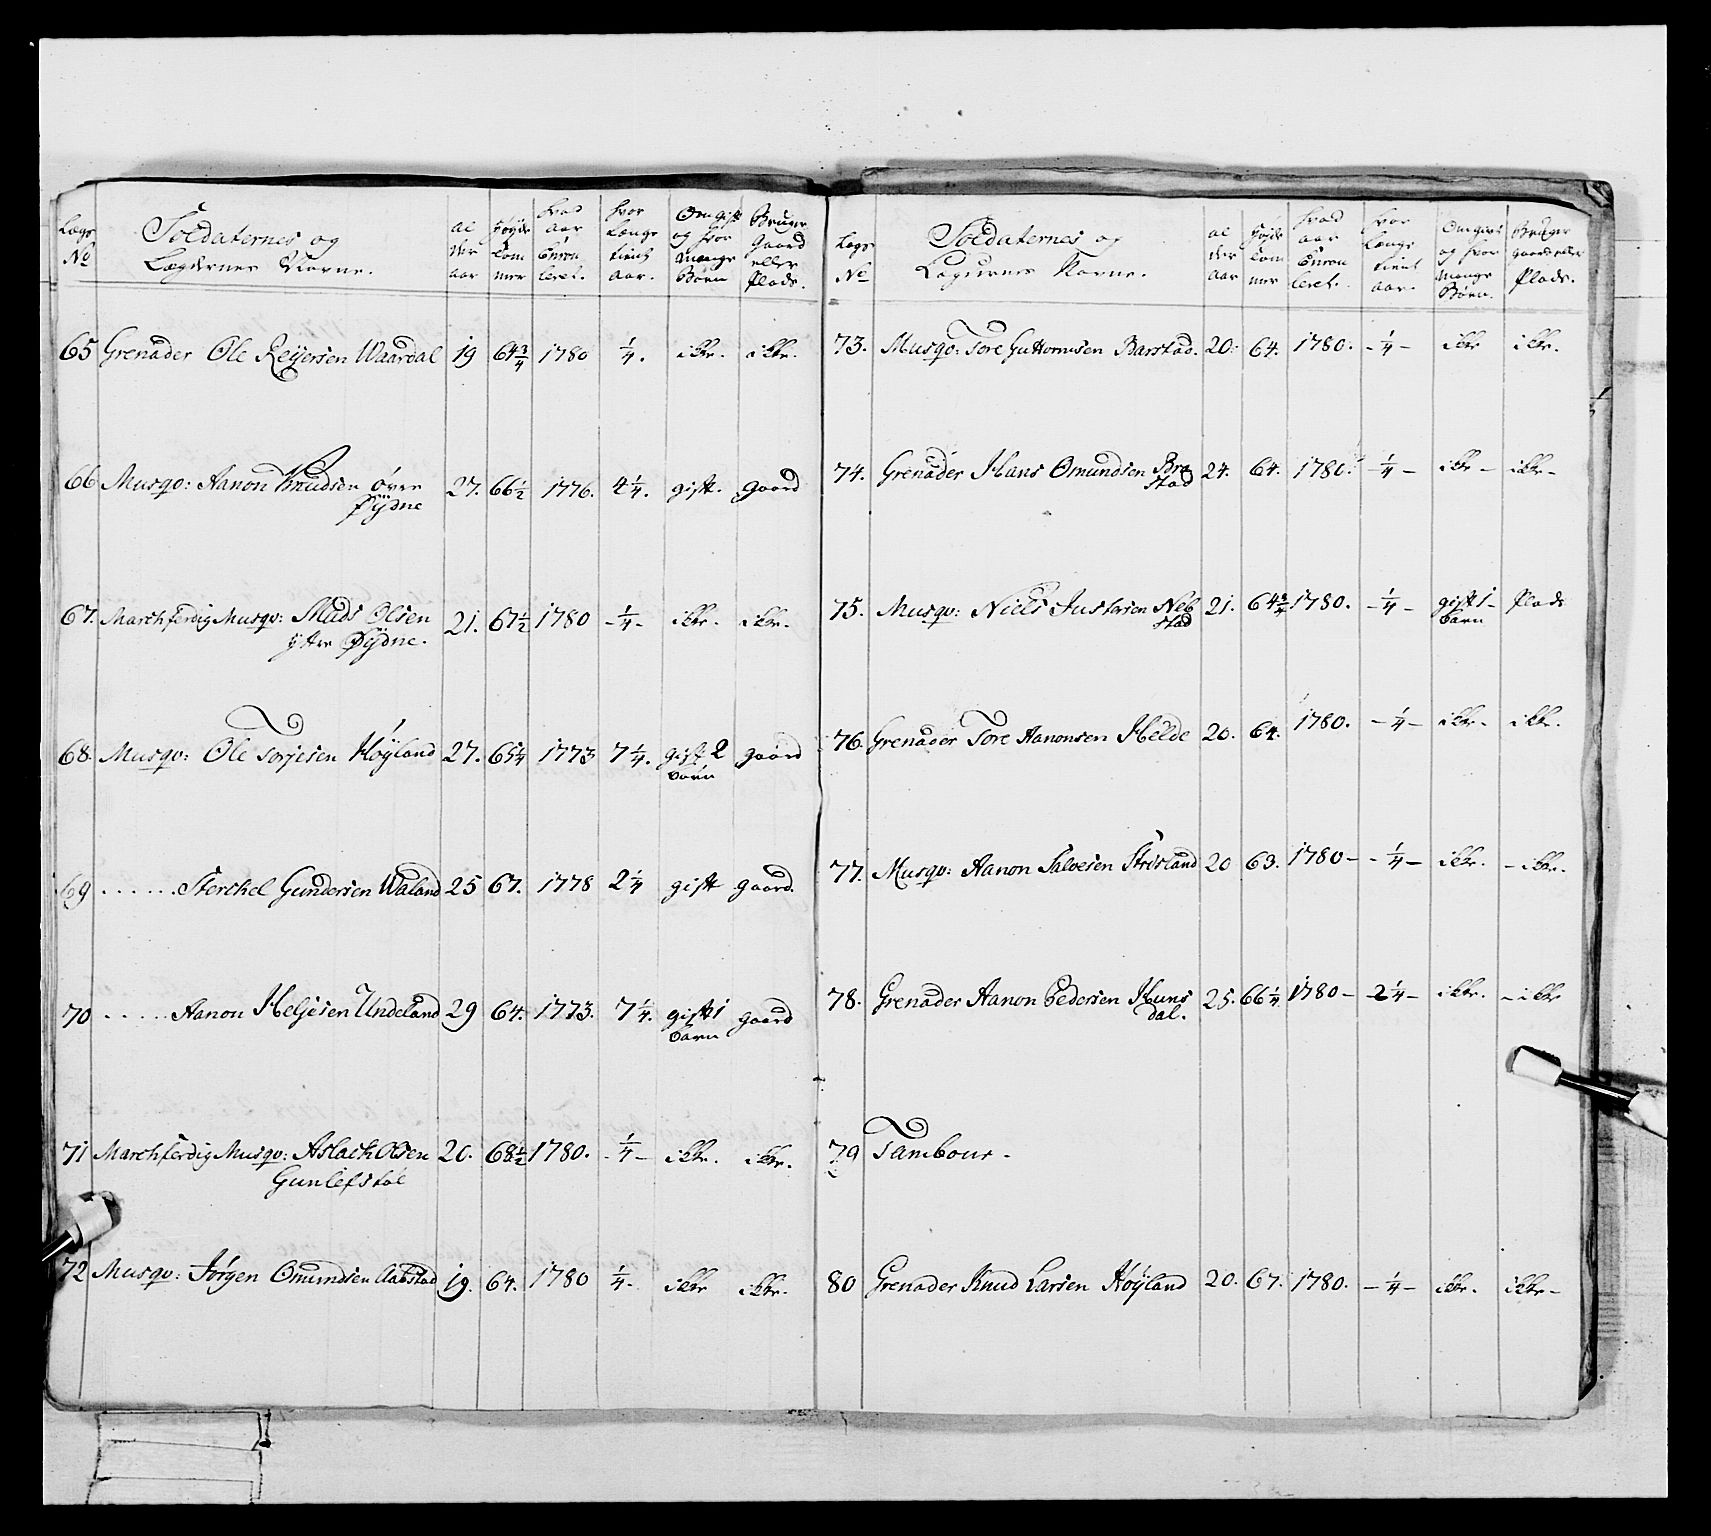 Lægs No | Soldaternes og Lægdernes Navne. | al der aar | Høyde tom mer | hvad aar Enrou leret. | hvor længe tient aar. | Om gift og hvor mange Børn | Bruger Gaard eller Plads.
65 Grenader Ole Reijersen Waardal 19 64 3/4 1780 1/4. ikke. ikke.
66 Musqv: Aanon Knudsen øvre 27. 66 1/2 1776. 4 1/4. gift. gaard
Øÿdne
67. Marchferdig Musqv: Mads Olsen 21. 67 1/2 1780 - 1/4 - ikke. ikke.
ÿtre Øÿdne.
68. Musqv: Ole Torjesen Høyland 27. 65 1/4 1773 7 1/4. gift 2 gaard
børn
69 . . . . . . Sterchel Gundersen Waland 25 67. 1778 2 1/4 gift gaard.
70 . . . . . Aanon Heljesen Undeland 29 64. 1773. 7 1/4. gift 1 gaard
barn
71 Marchferdig Musqv: Aslach Olsen 20. 68 1/2 1780. - 1/4 - ikke. ikke.
Gunlefstøl
72 Musqv: Jørgen Omundsen Aabstad 19. 64. 1780 1/4. ikke ikke.
Lægs No | Soldaternes og Lægdernes Navne. | al der aar | Høyde tom mer | hvad aar Enrou leret. | hvor længe tient aar. | Om givt og hvor mange Børn. | Bruger gaard eller Plads.
73. Musqv: Tore Guttormsen Barstad. 20. 64. 1780. - 1/4 - ikke ikke.
74. Grenader Hans Omundsen Bra 24. 64. 1780. - 1/4 - ikke - ikke -
stad
75. Musqv: Niels Justesen Neb 21. 64 3/4 1780. - 1/4 - gift 1 - Plads
stad barn
76. Grenader Tore Aanonsen Helde 20. 64. 1780. - 1/4 - ikke - ikke.
77. Musqv: Aanon Salvesen Strisland 20 63. 1780 - - 1/4 - ikke. - ikke.
78. Grenader Aanon Pedersen Huns 25. 66 1/4 1780 - - 2 1/4 - ikke. - ikke
dal.
79 Tambour -
80 Grenader Knud Larsen Høÿland 20. 67. 1780. - 1/4 - ikke. ikke -